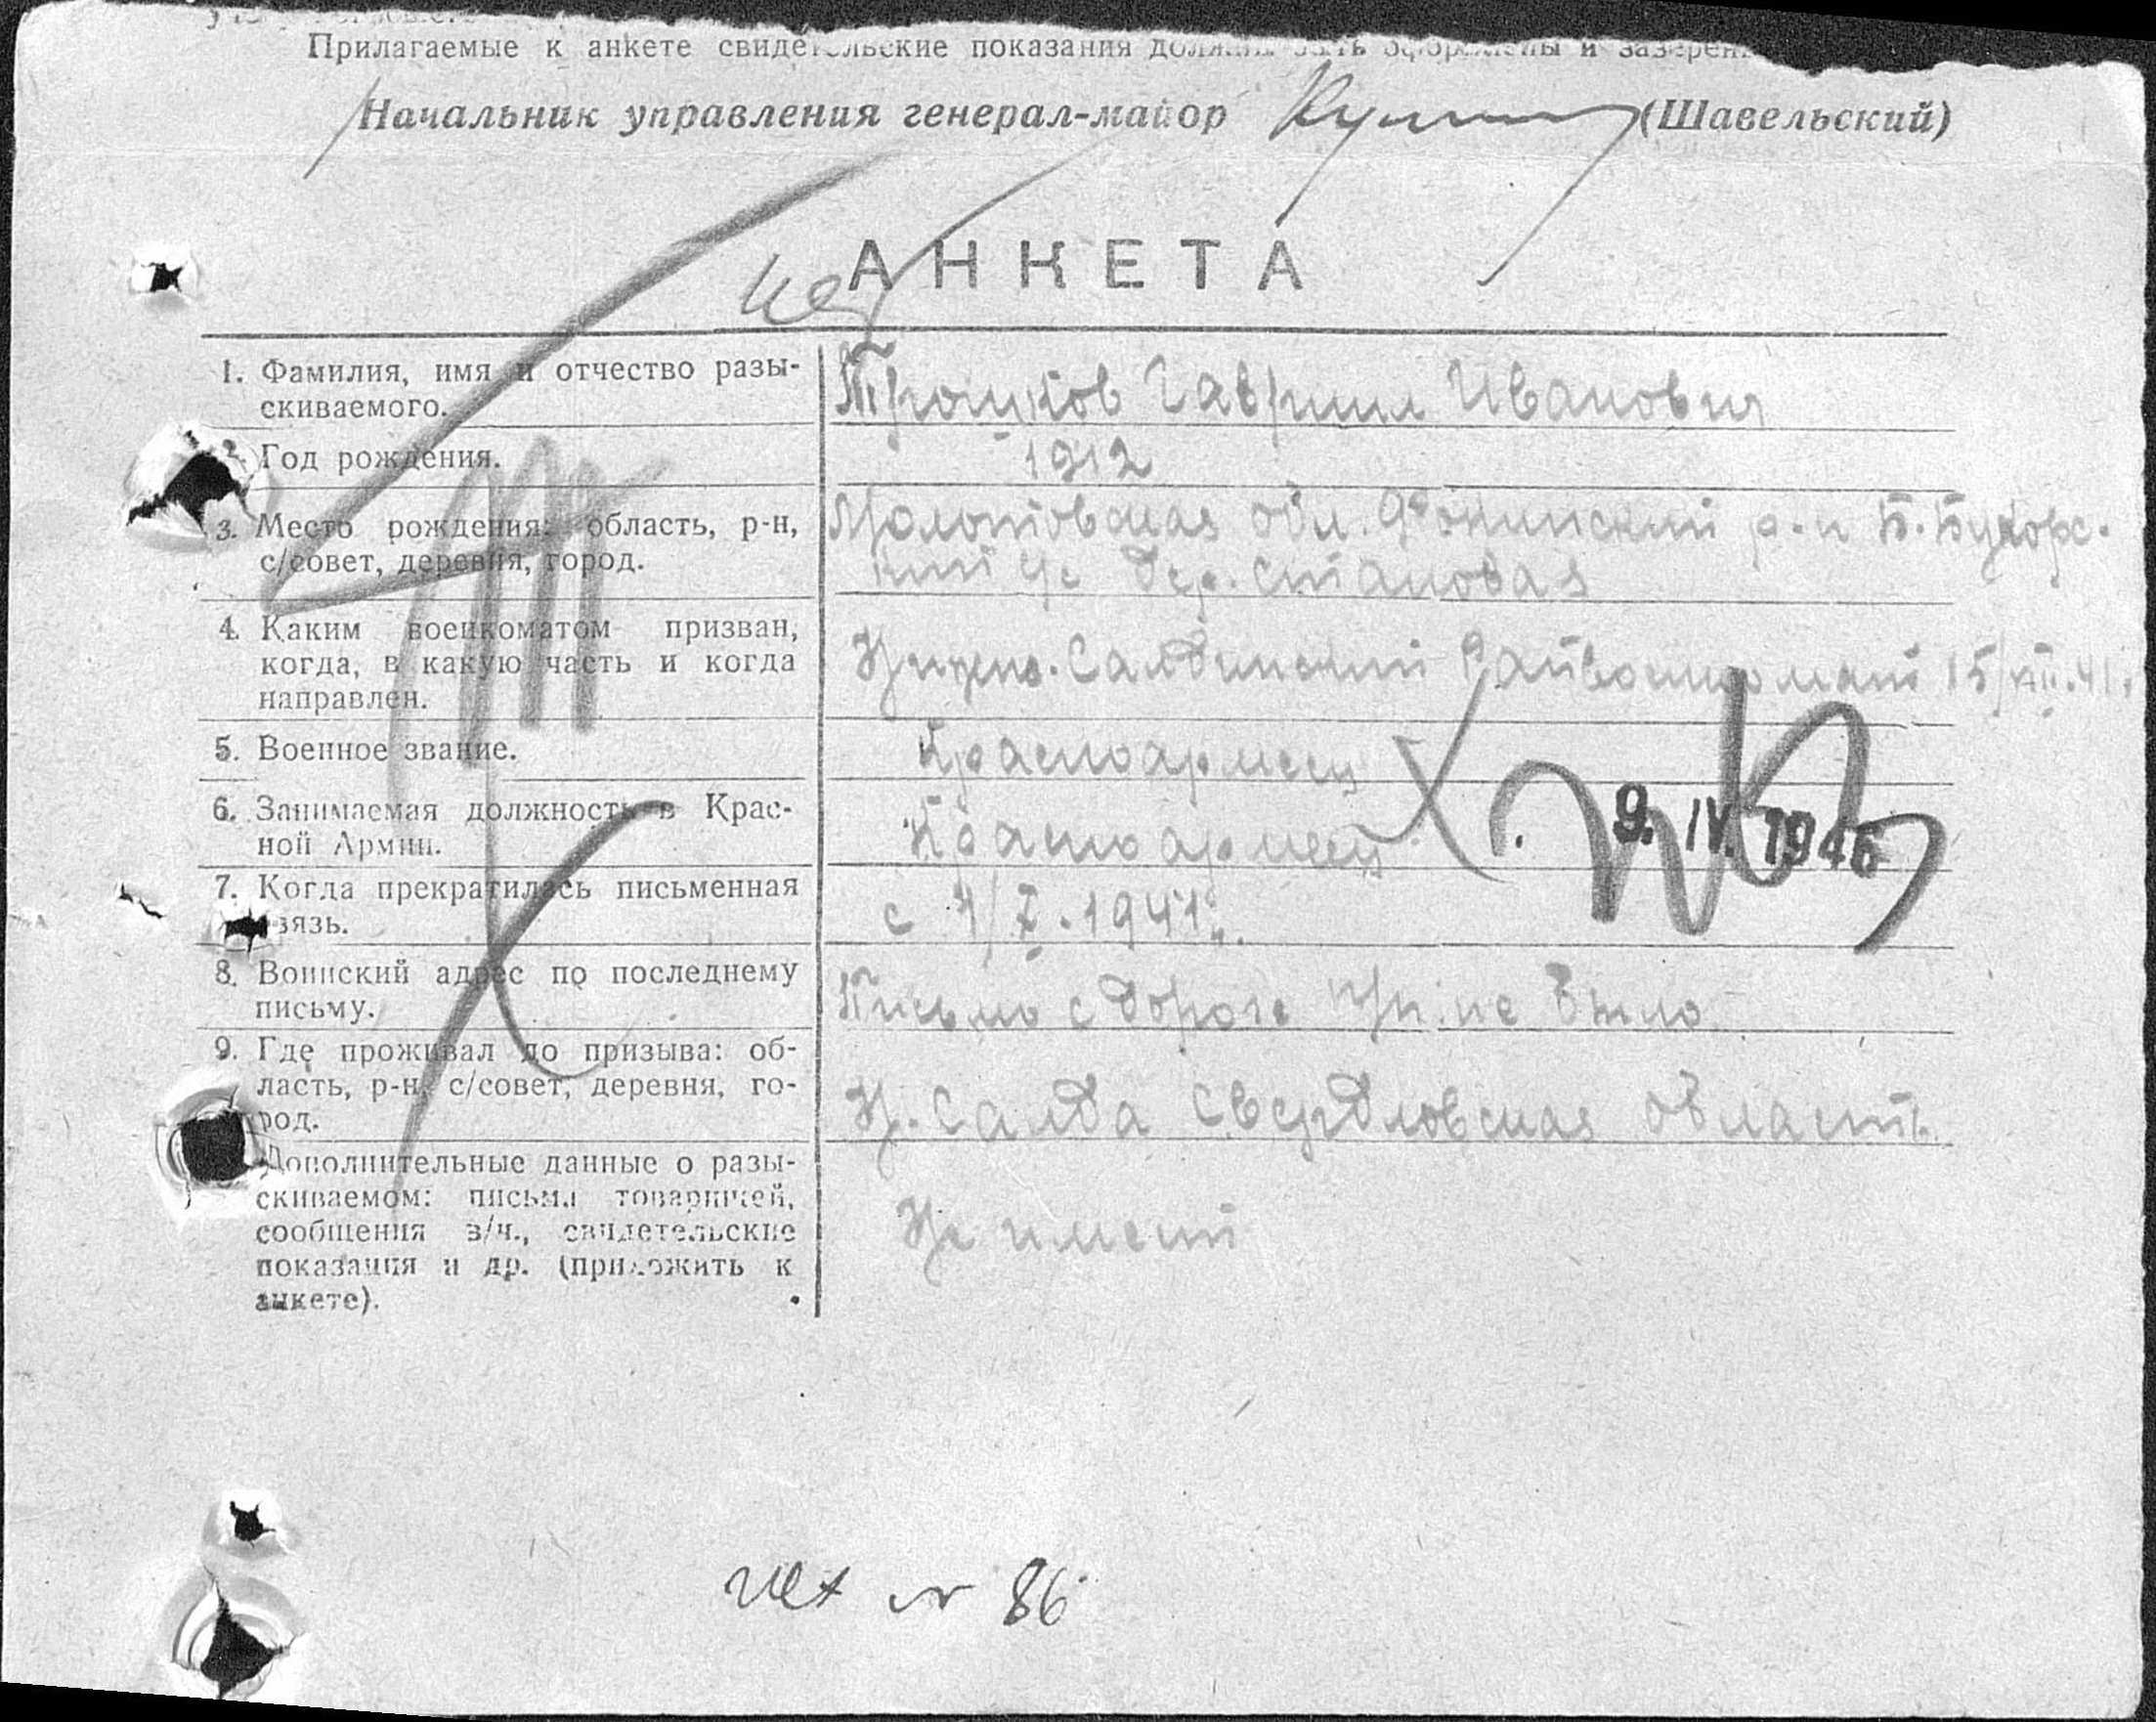 Прилагаемые к анкете свидетельские показания должны быть оформлены и заверен
Начальник управления генерал-майор (Шавельский)
АНКЕТА
1. Фамилия, имя и отчество разы-
скиваемого.
Трошков Гавриил Иванович
2. Год рождения.
1912
3. Место рождения: область, р-н,
с/совет, деревня, город.
Молотовская обл. Фокинский р-н Б. Букорс-
кий с/с дер. Становая
4. Каким военкоматом призван,
когда, в какую часть и когда
направлен.
Нижне-Салдинский Райвоенкомат 15/VIII.41г.
5. Военное звание.
Красноармеец
6. Занимаемая должность в Крас-
ной Армии.
Красноармеец
9. IV. 1946
7. Когда прекратилась письменная
связь.
с 1/X.1941г.
8. Воинский адрес по последнему
письму.
Письмо с дороги не было
9. Где проживал до призыва: об-
ласть, р-н, с/совет, деревня, го-
род.
Н. Салда Свердловская область
Дополнительные данные о разы-
скиваемом: письма товарищей,
сообщения в/ч., свидетельские
показания и др. (приложить к
анкете).
Не имеет
86